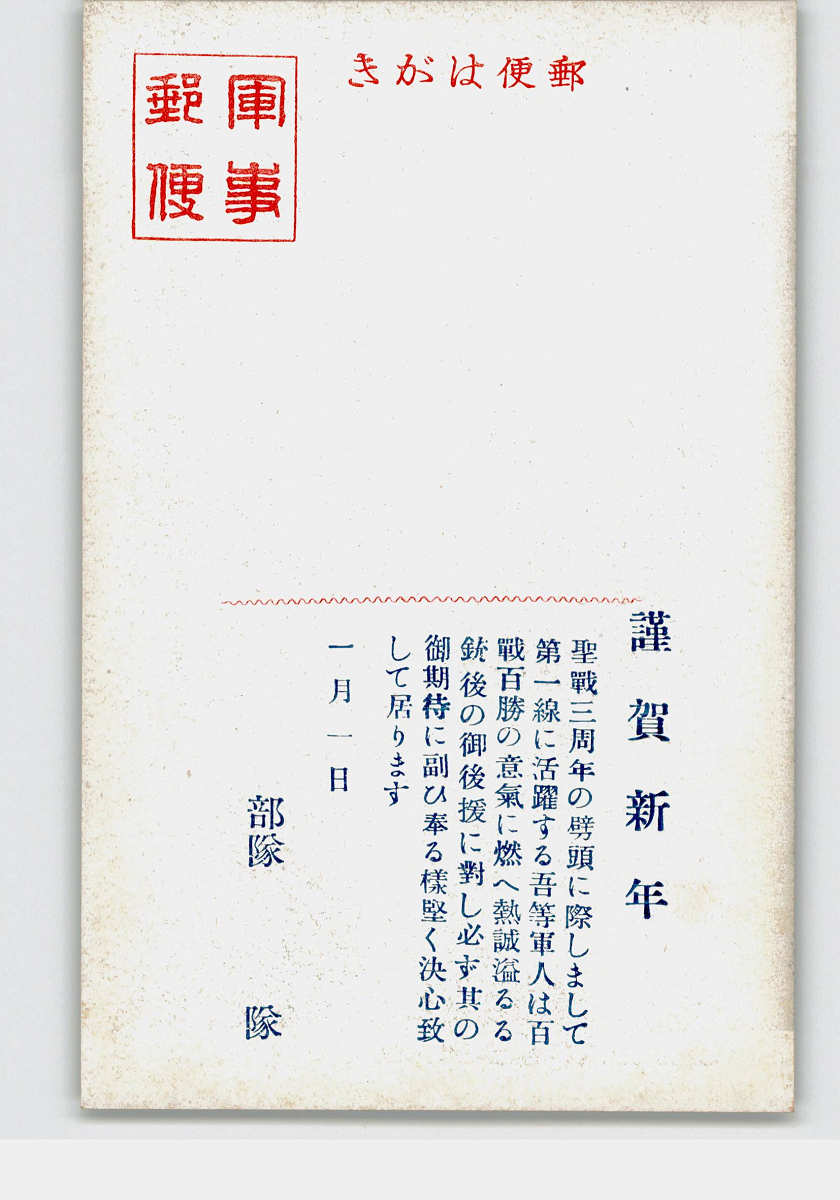 郵便はがき
軍事
郵便
謹賀新年
聖戰三周年の劈頭に際しまして
第一線に活躍する吾等軍人は百
戰百勝の意氣に燃へ熱誠溢るる
銃後の御後援に對し必ず其の
御期待に副ひ奉る樣堅く決心致
して居ります
一月一日
部隊
隊